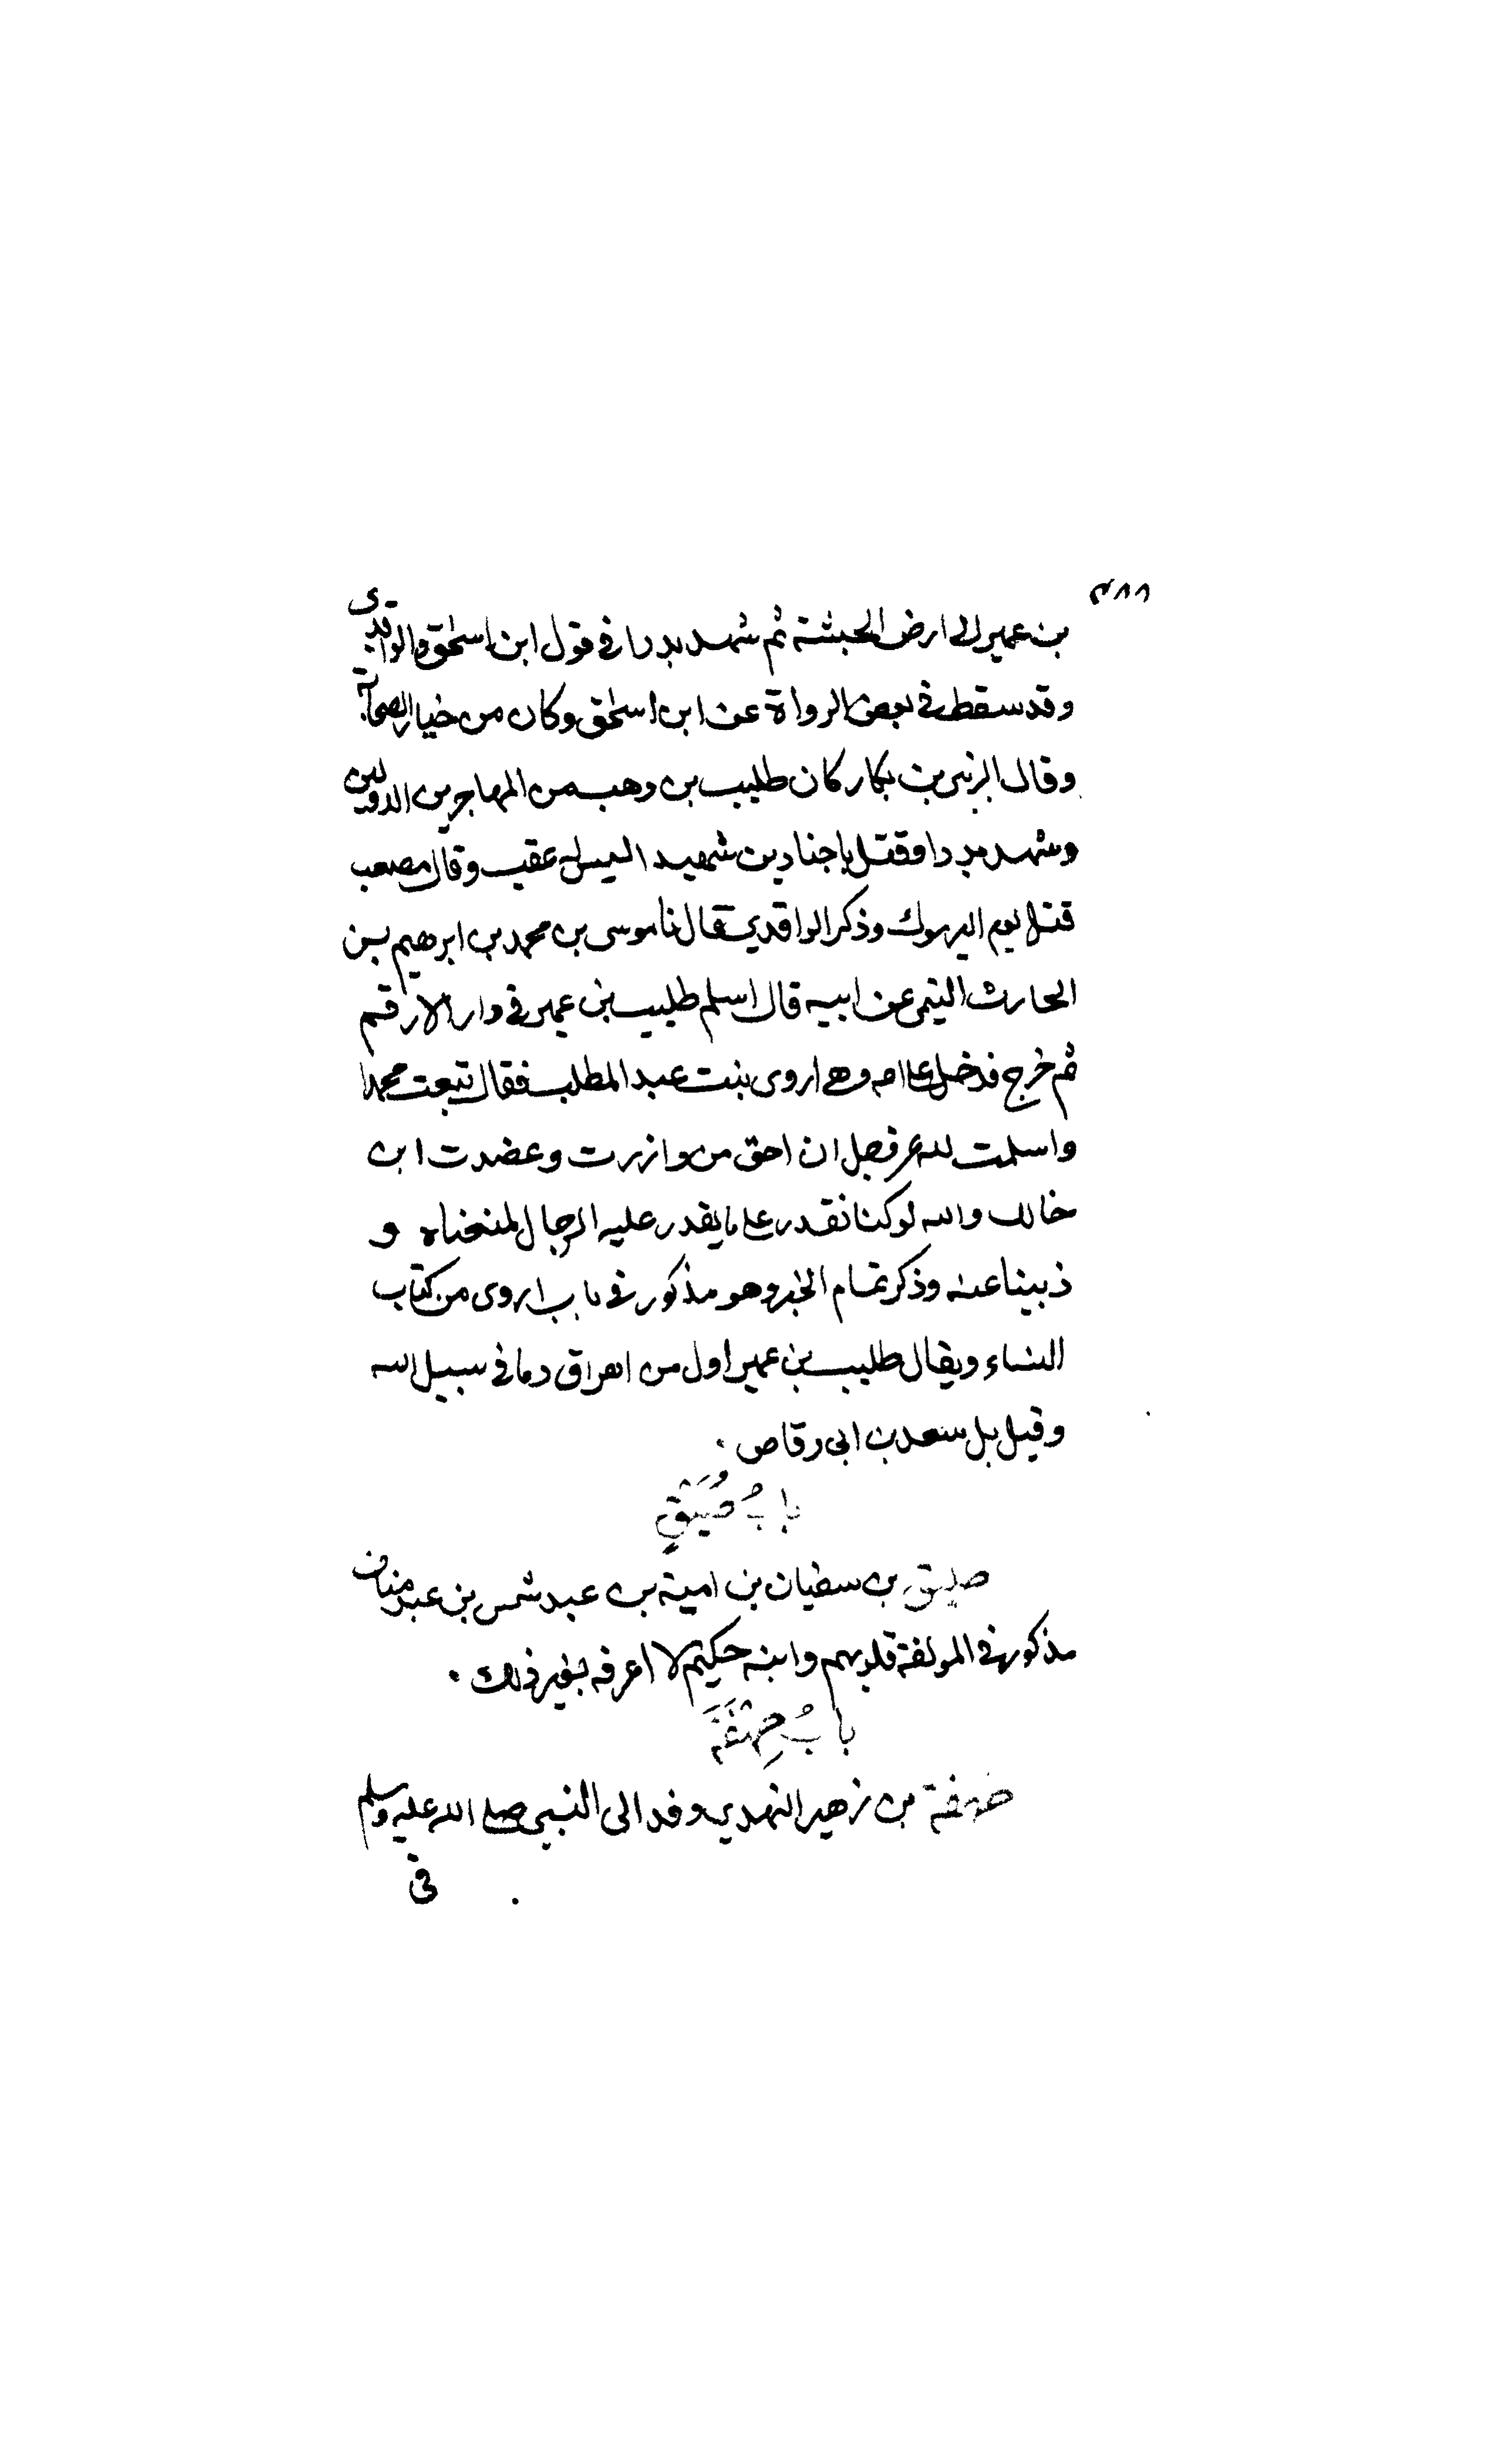 ٣٨٨
بن عمير الى ارض الحبشة ثم شهد بدرا فى قول ابن اسحق والواقدى
وقد سقط فى بعض الرواة عن ابن اسحق وكان من خيار الصحابة
وقال الزبير بن بكار كان طليب بن وهب من المهاجرين الاولين
وشهد بدرا وقتل باجنادين شهيدا ليس له عقب وقال مصعب
قتل يوم اليرموك وذكر الواقدي قال نا موسى بن محمد بن ابرهيم بن
الحارث التيمى عن ابيه قال اسلم طليب بن عمير فى دار الارقم
ثم خرج فدخل على امه وهى اروى بنت عبد المطلب فقال تبعت محمدا
واسلمت لله عز وجل ان احق من وازرت وعضدت ابن
خالك والله لو كنا نقدر على ما يقدر عليه الرجال لمنعناه و
ذبينا عنه وذكر تمام الخبر وهو مذكور فى باب اروى من كتاب
النساء ويقال طليب بن عمير اول من اهراق دما فى سبيل الله
وقيل بل سعد بن ابى وقاص .
بابُ طُلَيْقٍ
طليق بن سفيان بن امية بن عبد شمس بن عبد مناف
مذكور فى المولفة قلوبهم وابنه حكيم لا اعرفه بغير ذلك .
بابُ طِهْفَةَ
طهفة بن زهير النهدي وفد الى النبى صلى الله عليه وسلم
فى